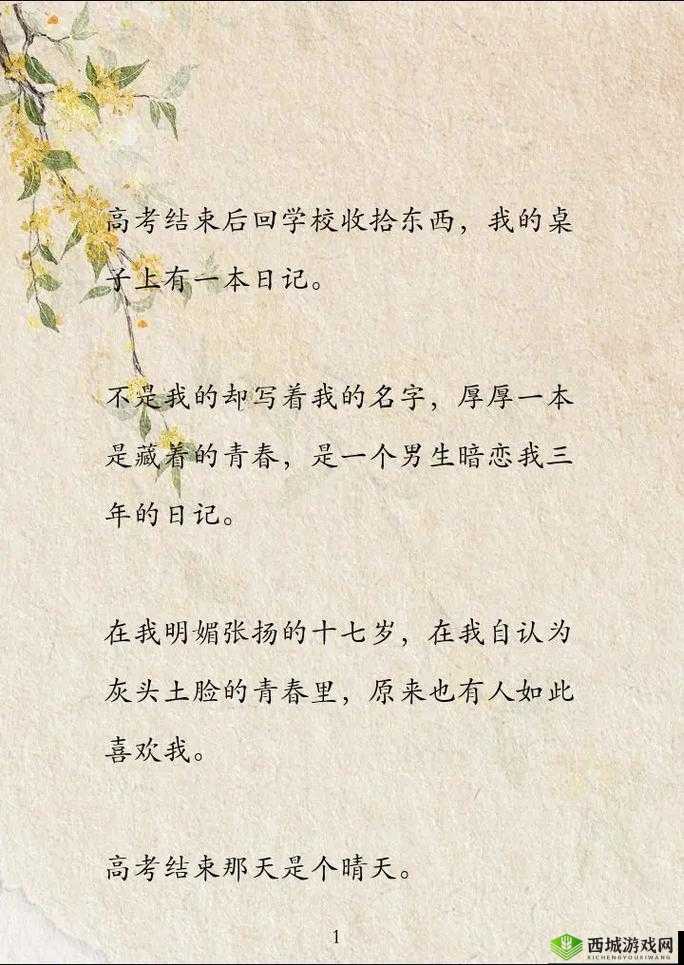 高考结束后回学校收拾东西，我的桌
子上有一本日记。
不是我的却写着我的名字，厚厚一本
是藏着的青春，是一个男生暗恋我三
年的日记。
在我明媚张扬的十七岁，在我自认为
灰头土脸的青春里，原来也有人如此
喜欢我。
高考结束那天是个晴天。
1
西城游戏网
XICHENGYOUXIWANG